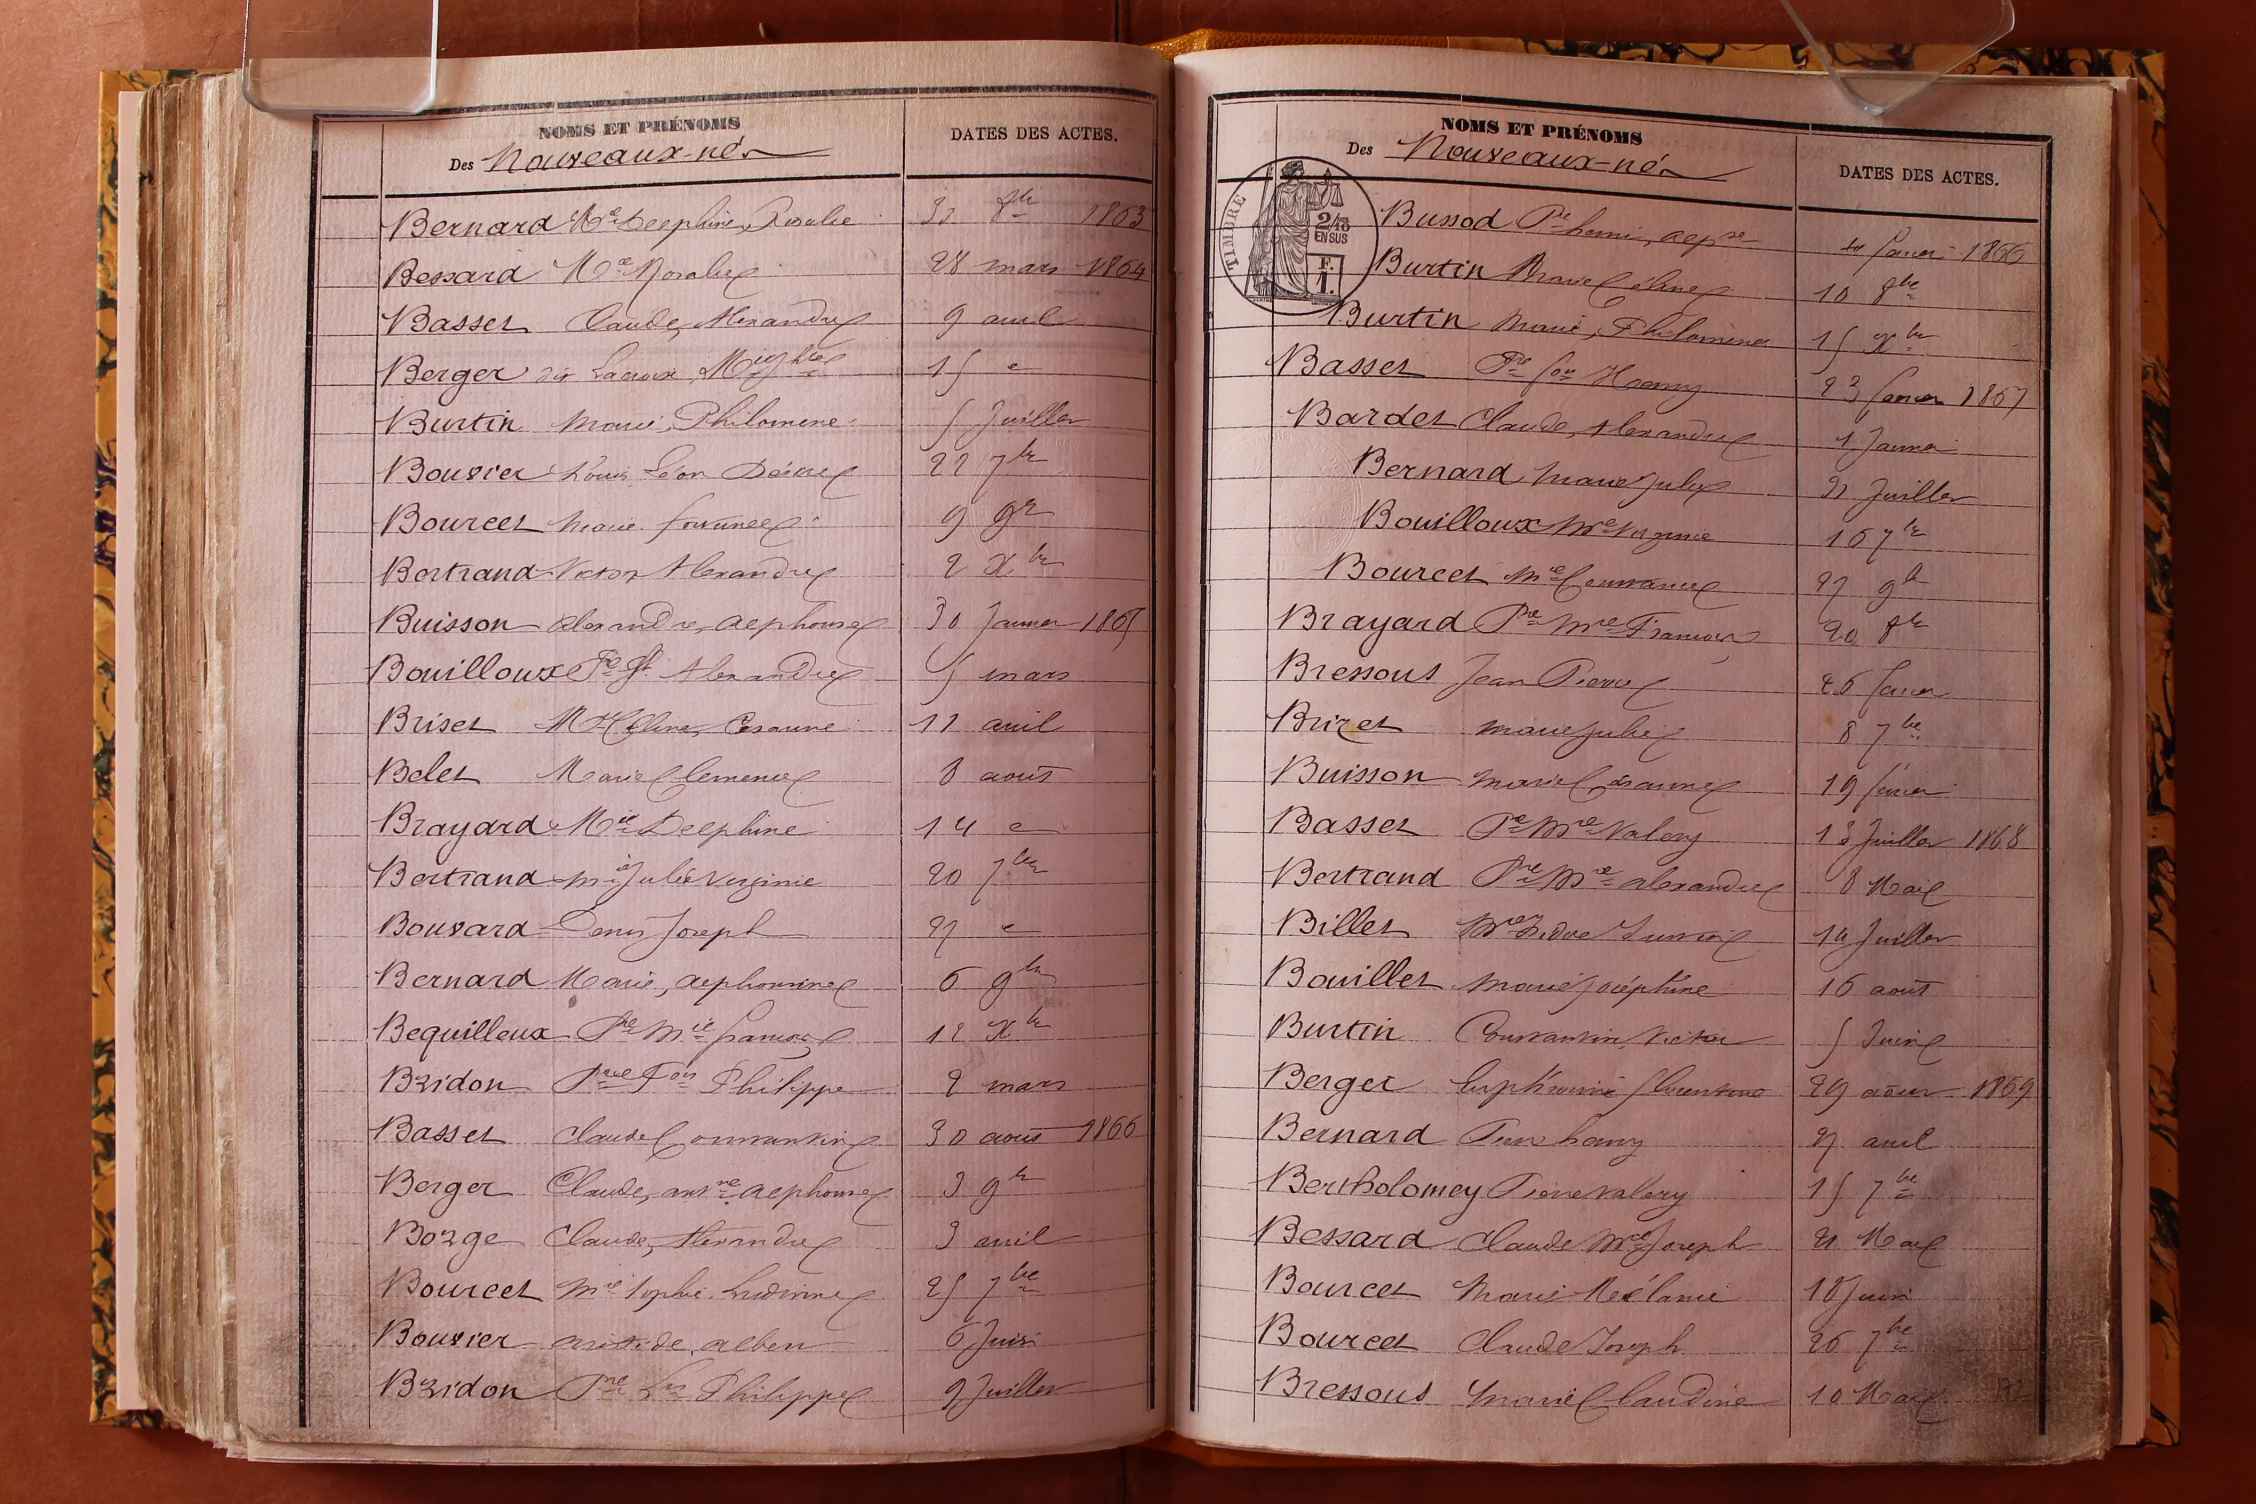 NOMS ET PRÉNOMS
Des Nouveaux-nés
DATES DES ACTES.
Bernard Mie Delphine, Rosalie 31 8bre 1863
Bessard Mie Rosalie 28 mars 1864
Basset Claude, Alexandre 9 avril
Berger dit Lacroix, 15 "
Burtin Marie, Philomène 5 Juillet
Bouvier Louis Léon Désiré 22 7bre
Bourcet Marie fortunée 9 9bre
Bertrand Victor Alexandre 2 Xbre
Buisson Alexandre, Alphonse 30 Janvier 1865
Bouilloux Alexandre 5 mars
Briset Célina, Césarine 11 avril
Belet Marie Clémence 8 août
Brayard Mie Delphine 14 "
Bertrand Mie Julie Virginie 20 7bre
Bouvard Denis Joseph 27 "
Bernard Marie, Alphonsine 6 9bre
Bequilleux Pre Mie François 12 Xbre
Bridon Pre Fois Philippe 2 mars
Basset Claude Constantin 30 août 1866
Berger Claude, antne Alphonse 3 9bre
Borge Claude, Alexandre 3 avril
Bourcet Mie Sophie 25 7bre
Bouvier Aristide, Albert 6 Juin
Bridon Pre Philippe 9 Juillet
NOMS ET PRÉNOMS
Des Nouveaux-nés
DATES DES ACTES.
TIMBRE
2/10
EN SUS
F.
1.
Bussod Pre henri, 1866
Burtin Marie Céline 10 8bre
Burtin Marie, Philomène 15 Xbre
Basset Pre Henry 23 1867
Bardet Claude, Alexandre 1 Janvier
Bernard Marie Julie 31 Juillet
Bouilloux Mie Virginie 16 7bre
Bourcet Mie Constance 27 9bre
Brayard Pre Mie François 20 8bre
Bressous Jean Pierre 26 février
Brizet Marie Julie 8 7bre
Buisson Marie Césarine 19 février
Basset Pre Mie Valery 13 Juillet 1868
Bertrand Pre Mie Alexandre 8 Mai
Billet 14 Juillet
Bouillet Marie Joséphine 16 août
Burtin Constantin, Victor 5 Juin
Berger Euphrosine Florentine 29 août 1869
Bernard Pierre henry 27 avril
Bertholomey Pierre Valery 15 7bre
Bessard Claude Mie Joseph 21 Mai
Bourcet Marie Mélanie 18 Juin
Bourcet Claude Joseph 26 7bre
Bressous Marie Claudine 10 Mai